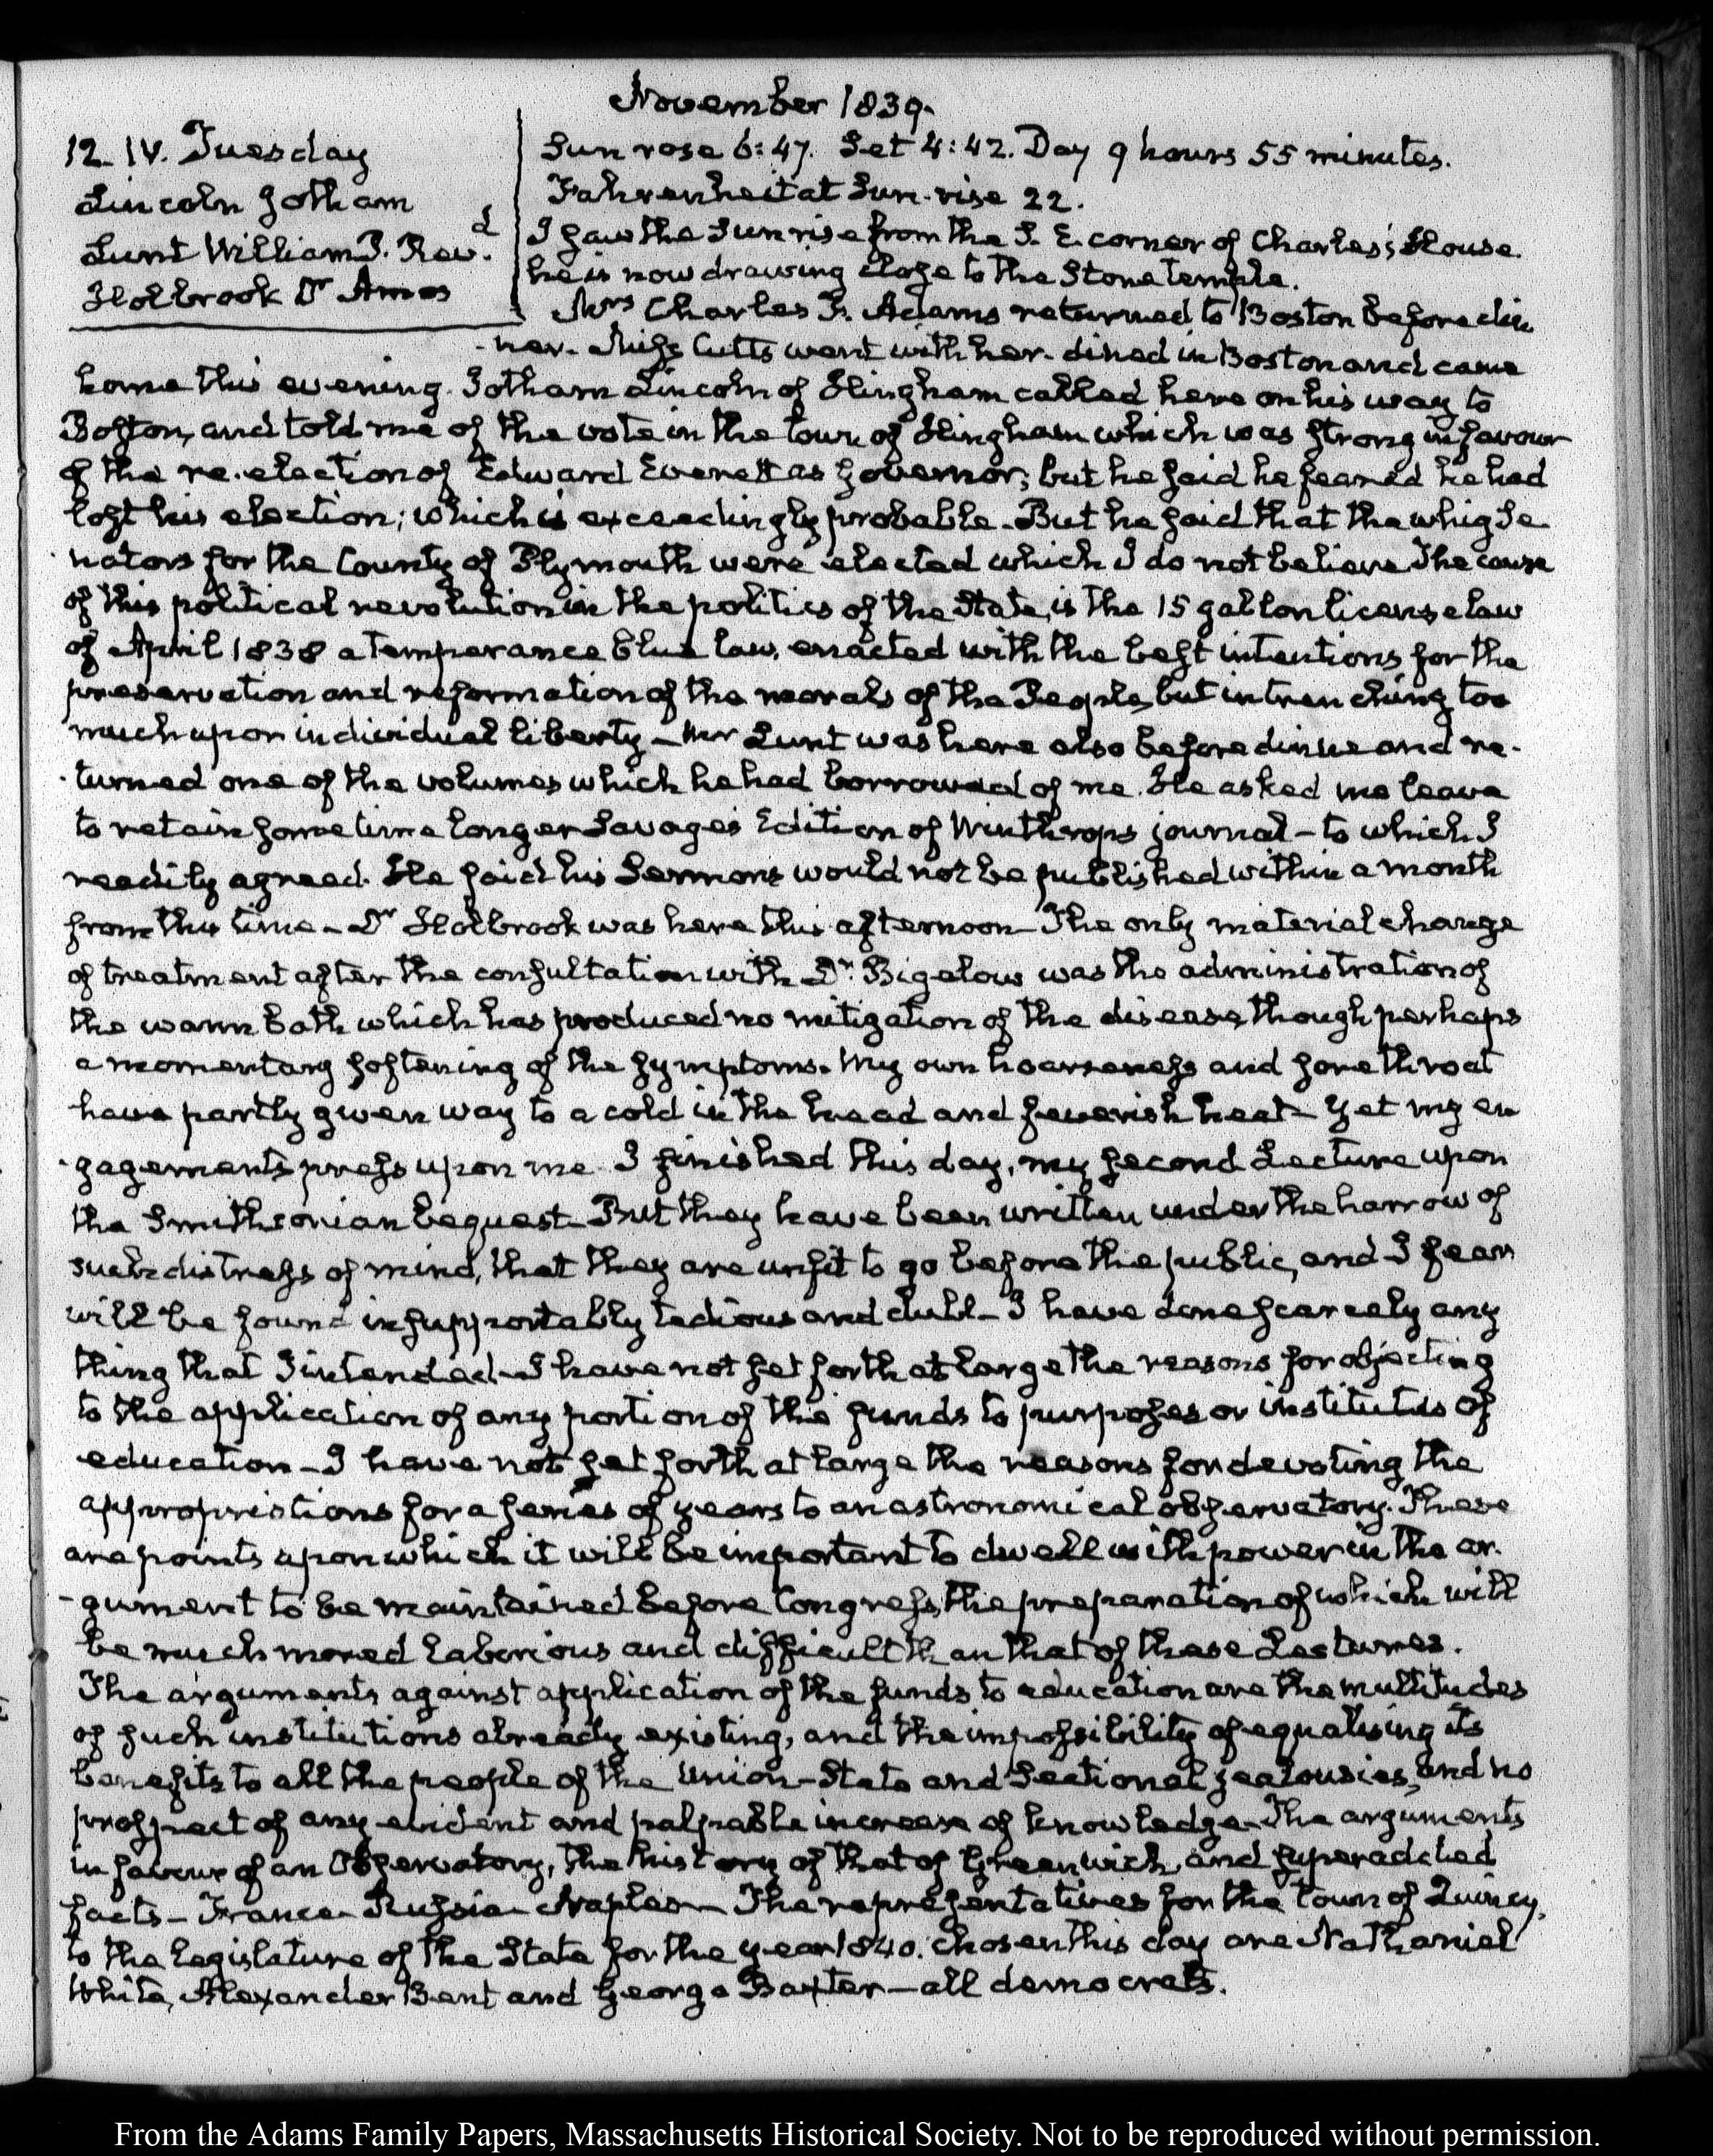 November 1839.
12. IV. Tuesday
Lincoln Jotham
Lunt William P. Revd.
Holbrook Dr Amos
Sun rose 6:47. Set 4:42. Day 9 hours 55 minutes.
Fahrenheit at Sun-rise 22.
I saw the Sun rise from the S. E. corner of Charles's House.
he is now drawing close to the Stone temple.
Mrs Charles F. Adams returned to Boston before din
-ner. Miss Cutts went with her. dined in Boston and came
home this evening. Jotham Lincoln of Hingham called here on his way to
Boston, and told me of the vote in the town of Hingham which was strong in favour
of the re-election of Edward Everett as Governor; but he said he feared he had
lost his election; which is exceedingly probable. But he said that the whig Se
-nators for the County of Plymouth were elected which I do not believe The cause
of this political revolution in the politics of the State, is the 15 gallon license law
of April 1838 a temperance blue law, enacted with the best intentions for the
preservation and reformation of the morals of the People, but intrenching too
much upon individual liberty — Mr Lunt was here also before dinner and re-
-turned one of the volumes which he had borrowed of me. He asked me leave
to retain some time longer Savage's Edition of Winthrops journal — to which I
readily agreed. He said his Sermons would not be published within a month
from this time — Dr Holbrook was here this afternoon — The only material change
of treatment after the consultation with Dr. Bigelow was the administration of
the warm bath which has produced no mitigation of the disease, though perhaps
a momentary softening of the symptoms. My own hoarseness and sore throat
have partly given way to a cold in the head and feverish heat — Yet my en
-gagements press upon me. I finished this day, my second Lecture upon
the Smithsonian bequest — But they have been written under the harrow of
such distress of mind, that they are unfit to go before the public, and I fear
will be found insupportably tedious and dull — I have done scarcely any
thing that I intended — I have not set forth at large the reasons for objecting
to the application of any portion of the funds to purposes or institutes of
education — I have not set forth at large the reasons for devoting the
appropriations for a series of years to an astronomical observatory. These
are points upon which it will be important to dwell with power in the ar-
-gument to be maintained before Congress, the preparation of which will
be much mored laborious and difficult than that of these Lectures.
The arguments against application of the funds to education are the multitudes
of such institutions already existing, and the impossibility of equalising its
benefits to all the people of the Union — State and Sectional jealousies, and no
prospect of any evident and palpable increase of knowledge — The arguments
in favour of an Observatory, the history of that of Greenwich, and superadded
facts — France — Russia — Naples — The representatives for the town of Quincy,
to the Legislature of the State for the year 1840. chosen this day are Nathaniel
White, Alexander Bent and George Baxter — all democrats.
From the Adams Family Papers, Massachusetts Historical Society. Not to be reproduced without permission.